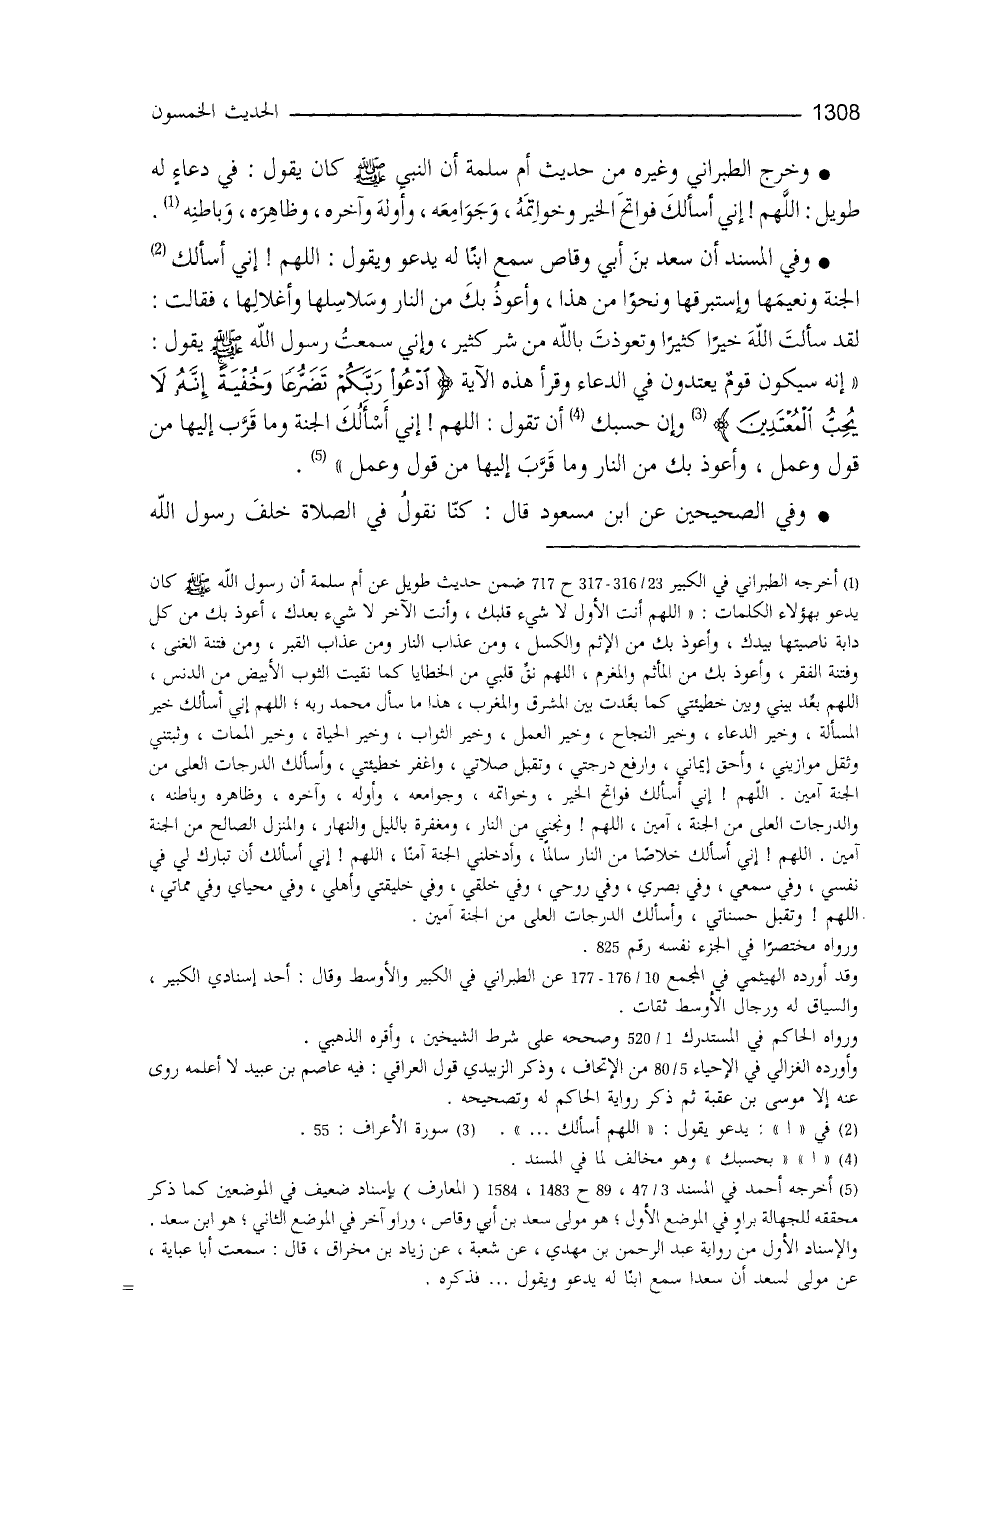 1308 الحديث الخمسون
• وخرج الطبراني وغيره من حديث أم سلمة أن النبي ﷺ كان يقول : في دعاءٍ له
طويل : اللَّهم ! إني أسألكَ فواتحَ الخير وخواتِمَهُ ، وَجَوَامِعَه ، وأولهَ وآخره ، وظاهِرَه ، وَباطنِه (1) .
• وفي المسند أن سعد بنَ أبي وقاص سمع ابنًا له يدعو ويقول : اللهم ! إني أسألك (2)
الجنة ونعيمَها وإستبرقها ونحوًا من هذا ، وأعوذُ بكَ من النار وسَلاسِلها وأغلالِها ، فقالت :
لقد سألتَ اللّهَ خيرًا كثيرًا وتعوذتَ باللّه من شر كثير ، وإني سمعتُ رسول اللّه ﷺ يقول :
« إنه سيكون قومٌ يعتدون في الدعاء وقرأ هذه الآية ﴿ ٱدْعُوا۟ رَبَّكُمْ تَضَرُّعًا وَخُفْيَةً إِنَّهُۥ لَا
يُحِبُّ ٱلْمُعْتَدِينَ ﴾ (3) وإن حسبك (4) أن تقول : اللهم ! إني أَسْأَلُكَ الجنة وما قَرَّب إليها من
قول وعمل ، وأعوذ بك من النار وما قَرَّبَ إليها من قول وعمل » (5) .
• وفي الصحيحين عن ابن مسعود قال : كنّا نقولُ في الصلاة خلفَ رسول اللّه
(1) أخرجه الطبراني في الكبير 23/ 316-317 ح 717 ضمن حديث طويل عن أم سلمة أن رسول اللّه ﷺ كان
يدعو بهؤلاء الكلمات : « اللهم أنت الأول لا شيء قلبك ، وأنت الآخر لا شيء بعدك ، أعوذ بك من كل
دابة ناصيتها بيدك ، وأعوذ بك من الإثم والكسل ، ومن عذاب النار ومن عذاب القبر ، ومن فتنة الغنى ،
وفتنة الفقر ، وأعوذ بك من المأثم والمغرم ، اللهم نقِّ قلبي من الخطايا كما نقيت الثوب الأبيض من الدنس ،
اللهم بعِّد بيني وبين خطيئتي كما بعَّدت بين المشرق والمغرب ، هذا ما سأل محمد ربه ؛ اللهم إني أسألك خير
المسألة ، وخير الدعاء ، وخير النجاح ، وخير العمل ، وخير الثواب ، وخير الحياة ، وخير الممات ، وثبتني
وثقل موازيني ، وأحق إيماني ، وارفع درجتي ، وتقبل صلاتي ، واغفر خطيئتي ، وأسألك الدرجات العلى من
الجنة آمين . اللّهم ! إني أسألك فواتح الخير ، وخواتمه ، وجوامعه ، وأوله ، وآخره ، وظاهره وباطنه ،
والدرجات العلى من الجنة ، آمين ، اللهم ! ونجني من النار ، ومغفرة بالليل والنهار ، والمنزل الصالح من الجنة
آمين . اللهم ! إني أسألك خلاصًا من النار سالمًا ، وأدخلني الجنة آمنًا ، اللهم ! إني أسألك أن تبارك لي في
نفسي ، وفي سمعي ، وفي بصري ، وفي روحي ، وفي خلقي ، وفي خليقتي وأهلي ، وفي محياي وفي مماتي ،
اللهم ! وتقبل حسناتي ، وأسألك الدرجات العلى من الجنة آمين .
ورواه مختصرًا في الجزء نفسه رقم 825 .
وقد أورده الهيثمي في المجمع 10/ 176-177 عن الطبراني في الكبير والأوسط وقال : أحد إسنادي الكبير ،
والسياق له ورجال الأوسط ثقات .
ورواه الحاكم في المستدرك 1/ 520 وصححه على شرط الشيخين ، وأقره الذهبي .
وأورده الغزالي في الإحياء 5/ 80 من الإتحاف ، وذكر الزبيدي قول العراقي : فيه عاصم بن عبيد لا أعلمه روى
عنه إلا موسى بن عقبة ثم ذكر رواية الحاكم له وتصحيحه .
(2) في « ا » : يدعو يقول : « اللهم أسألك ... » . (3) سورة الأعراف : 55 .
(4) « ا » « بحسبك » وهو مخالف لما في المسند .
(5) أخرجه أحمد في المسند 3/ 47 ، 89 ح 1483 ، 1584 ( المعارف ) بإسناد ضعيف في الموضعين كما ذكر
محققه للجهالة براوٍ في الموضع الأول ؛ هو مولى سعد بن أبي وقاص ، وراو آخر في الموضع الثاني ؛ هو ابن سعد .
والإسناد الأول من رواية عبد الرحمن بن مهدي ، عن شعبة ، عن زياد بن مخراق ، قال : سمعت أبا عباية ،
عن مولى لسعد أن سعدا سمع ابنًا له يدعو ويقول ... فذكره . =